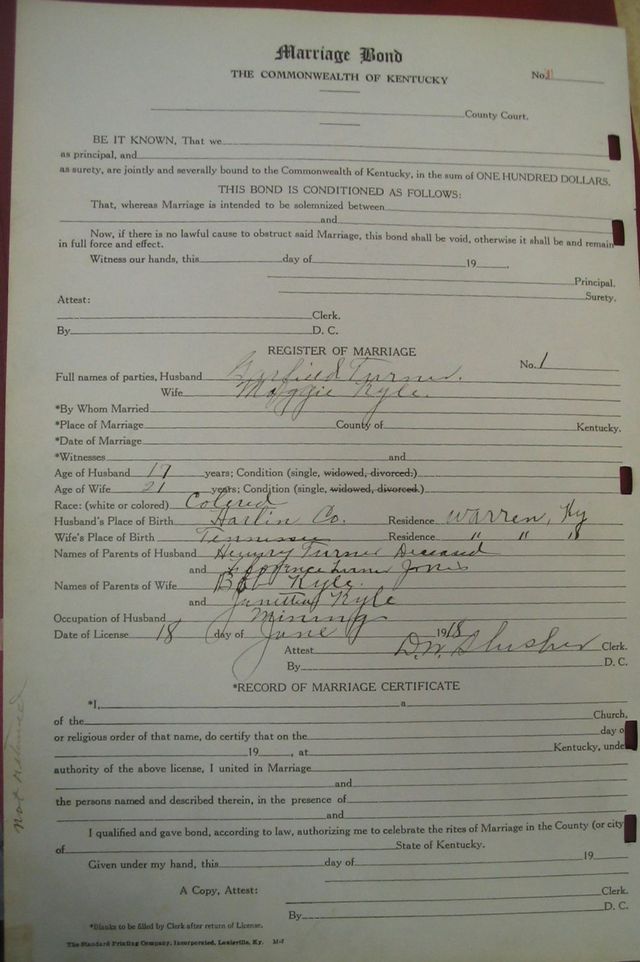 Marriage Bond
THE COMMONWEALTH OF KENTUCKY
No. 1
County Court.
BE IT KNOWN, That we
as principal, and
as surety, are jointly and severally bound to the Commonwealth of Kentucky, in the sum of ONE HUNDRED DOLLARS.
THIS BOND IS CONDITIONED AS FOLLOWS:
That, whereas Marriage is intended to be solemnized between
and
Now, if there is no lawful cause to obstruct said Marriage, this bond shall be void, otherwise it shall be and remain
in full force and effect.
Witness our hands, this day of 19 .
Principal.
Surety.
Attest:
Clerk.
By D. C.
REGISTER OF MARRIAGE
No. 1
Full names of parties, Husband Garfield Turner.
Wife Maggie Kyle.
*By Whom Married
*Place of Marriage County of Kentucky.
*Date of Marriage
*Witnesses and
Age of Husband 17 years; Condition (single, widowed, divorced.)
Age of Wife 21 years; Condition (single, widowed, divorced.)
Race: (white or colored) Colored
Husband's Place of Birth Harlin Co. Residence Warren, Ky
Wife's Place of Birth Tennessee Residence " " "
Names of Parents of Husband Turner Deceased
and Jones
Names of Parents of Wife Bob Kyle.
and Kyle
Occupation of Husband Mining
Date of License 18 day of June 1918
Attest D.W. Slusher Clerk.
By D. C.
*RECORD OF MARRIAGE CERTIFICATE
*I, a
of the Church,
or religious order of that name, do certify that on the day o
19 , at Kentucky, unde
authority of the above license, I united in Marriage
and
the persons named and described therein, in the presence of
and
I qualified and gave bond, according to law, authorizing me to celebrate the rites of Marriage in the County (or city
of State of Kentucky.
Given under my hand, this day of 19
A Copy, Attest: Clerk.
By D. C.
*Blanks to be filled by Clerk after return of License.
The Standard Printing Company, Incorporated, Louisville, Ky.
not returned